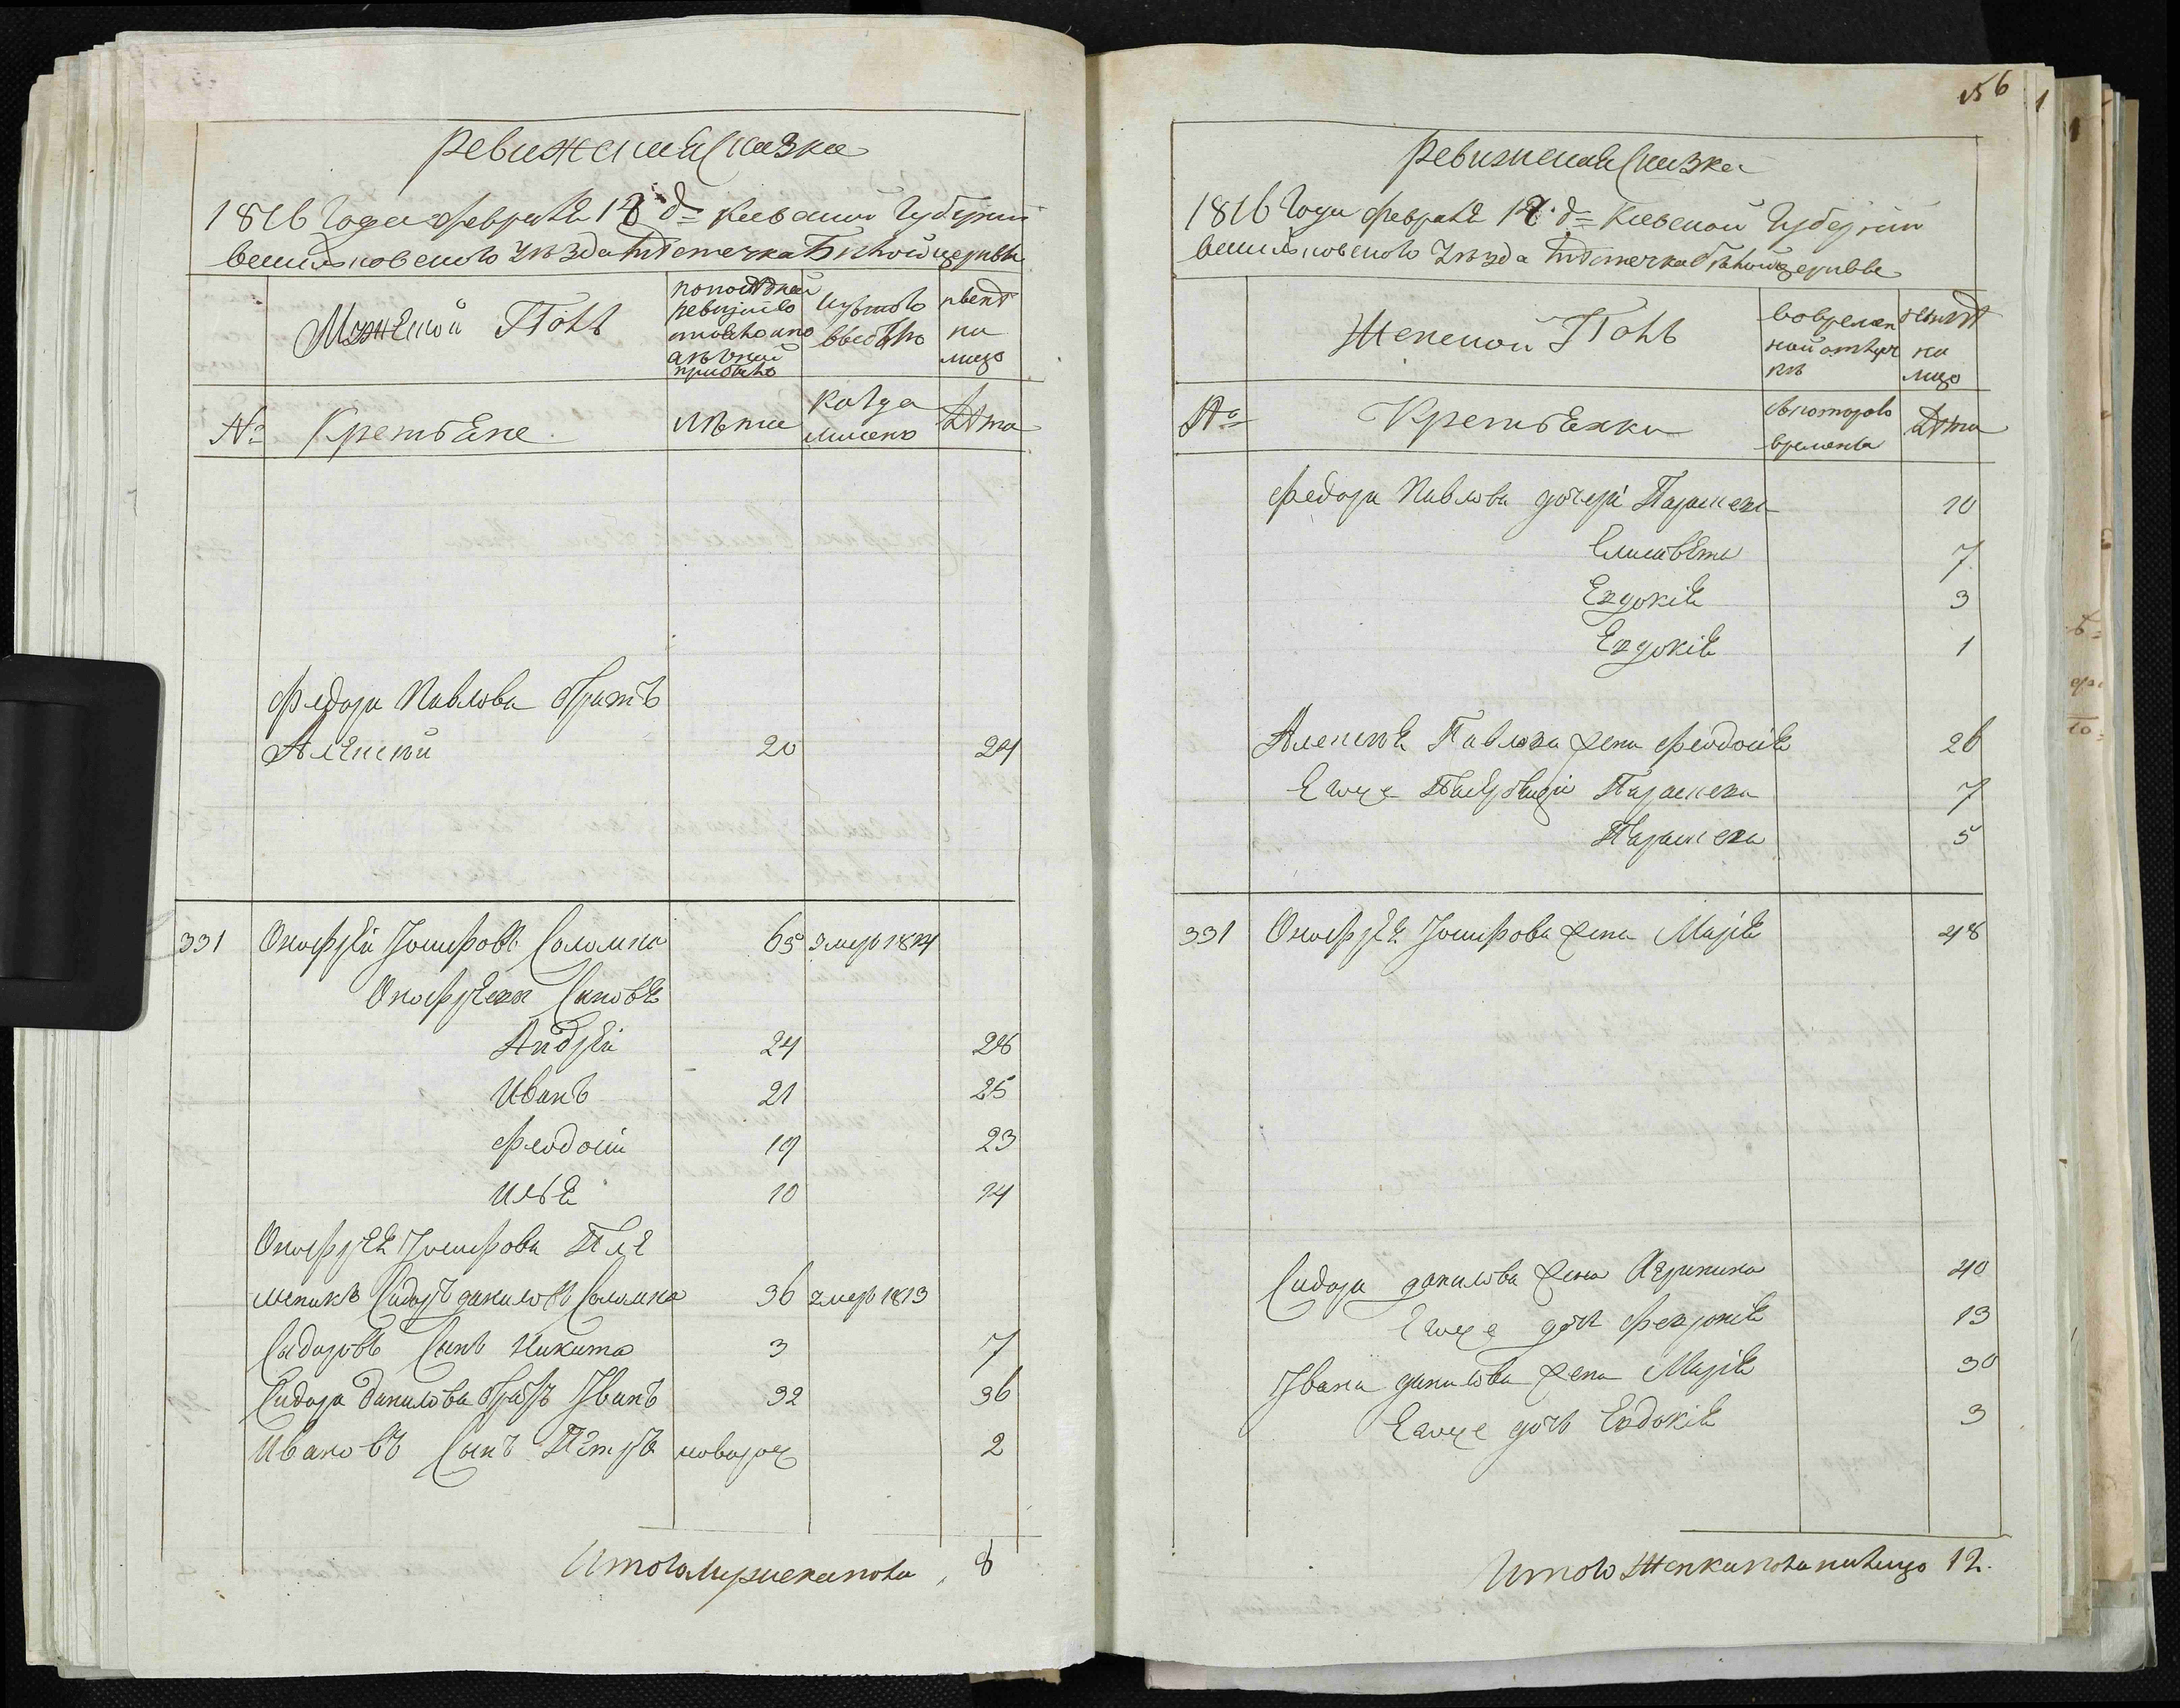 Ревижская Сказка
1816 Года февраля 18 д= Киевской Губернии
васильковского уѣзда Местечка Бѣлой церкви
Мужеской Полъ
по последней ревизіи состояло и после оной прибыло
Изъ того выбыло
ныне на лицо
№ Крестьяне
Лѣта
Когда именно
Лѣта
Федора Павлова братъ
Алексей 20 24
331 Онофрей Іосифовъ Соломка 65 умеръ 1814
Онофреевы Сыновья
Андрей 24 28
Иванъ 21 25
Феодосій 19 23
Илья 10 14
Онофрея Іосифова Пле
меникъ Сидоръ даниловъ Соломка 36 умеръ 1813
Сидоровъ Сынъ Никита 3 7
Сидора данилова братъ Іванъ 32 36
Ивановъ Сынъ Петръ новорож 2
Итого мужеска пола 8
156
Ревижская Сказка
1816 Года февраля 18 д= Киевской Губерніи
васильковского уѣзда Местечка бѣлой церкви
Женской Полъ
во времен
ной отлуч
кѣ
ныне
на
лицо
№ Крестьянки
съ которого
времени
Лѣта
Федора Павлова дочери Параскева 10
Елисавета 7
Евдокія 3
Евдокія 1
Алексея Павлова жена Феодосія 26
Его же Параскева 7
Параскева 5
331 Онофрея Іосифова жена Марія 48
Сидора данилова жена Агрипина 40
Его же дочь Февронія 13
Івана данилова жена Марія 30
Его же дочь Евдокія 3
Итого Женска пола на лицо 12.